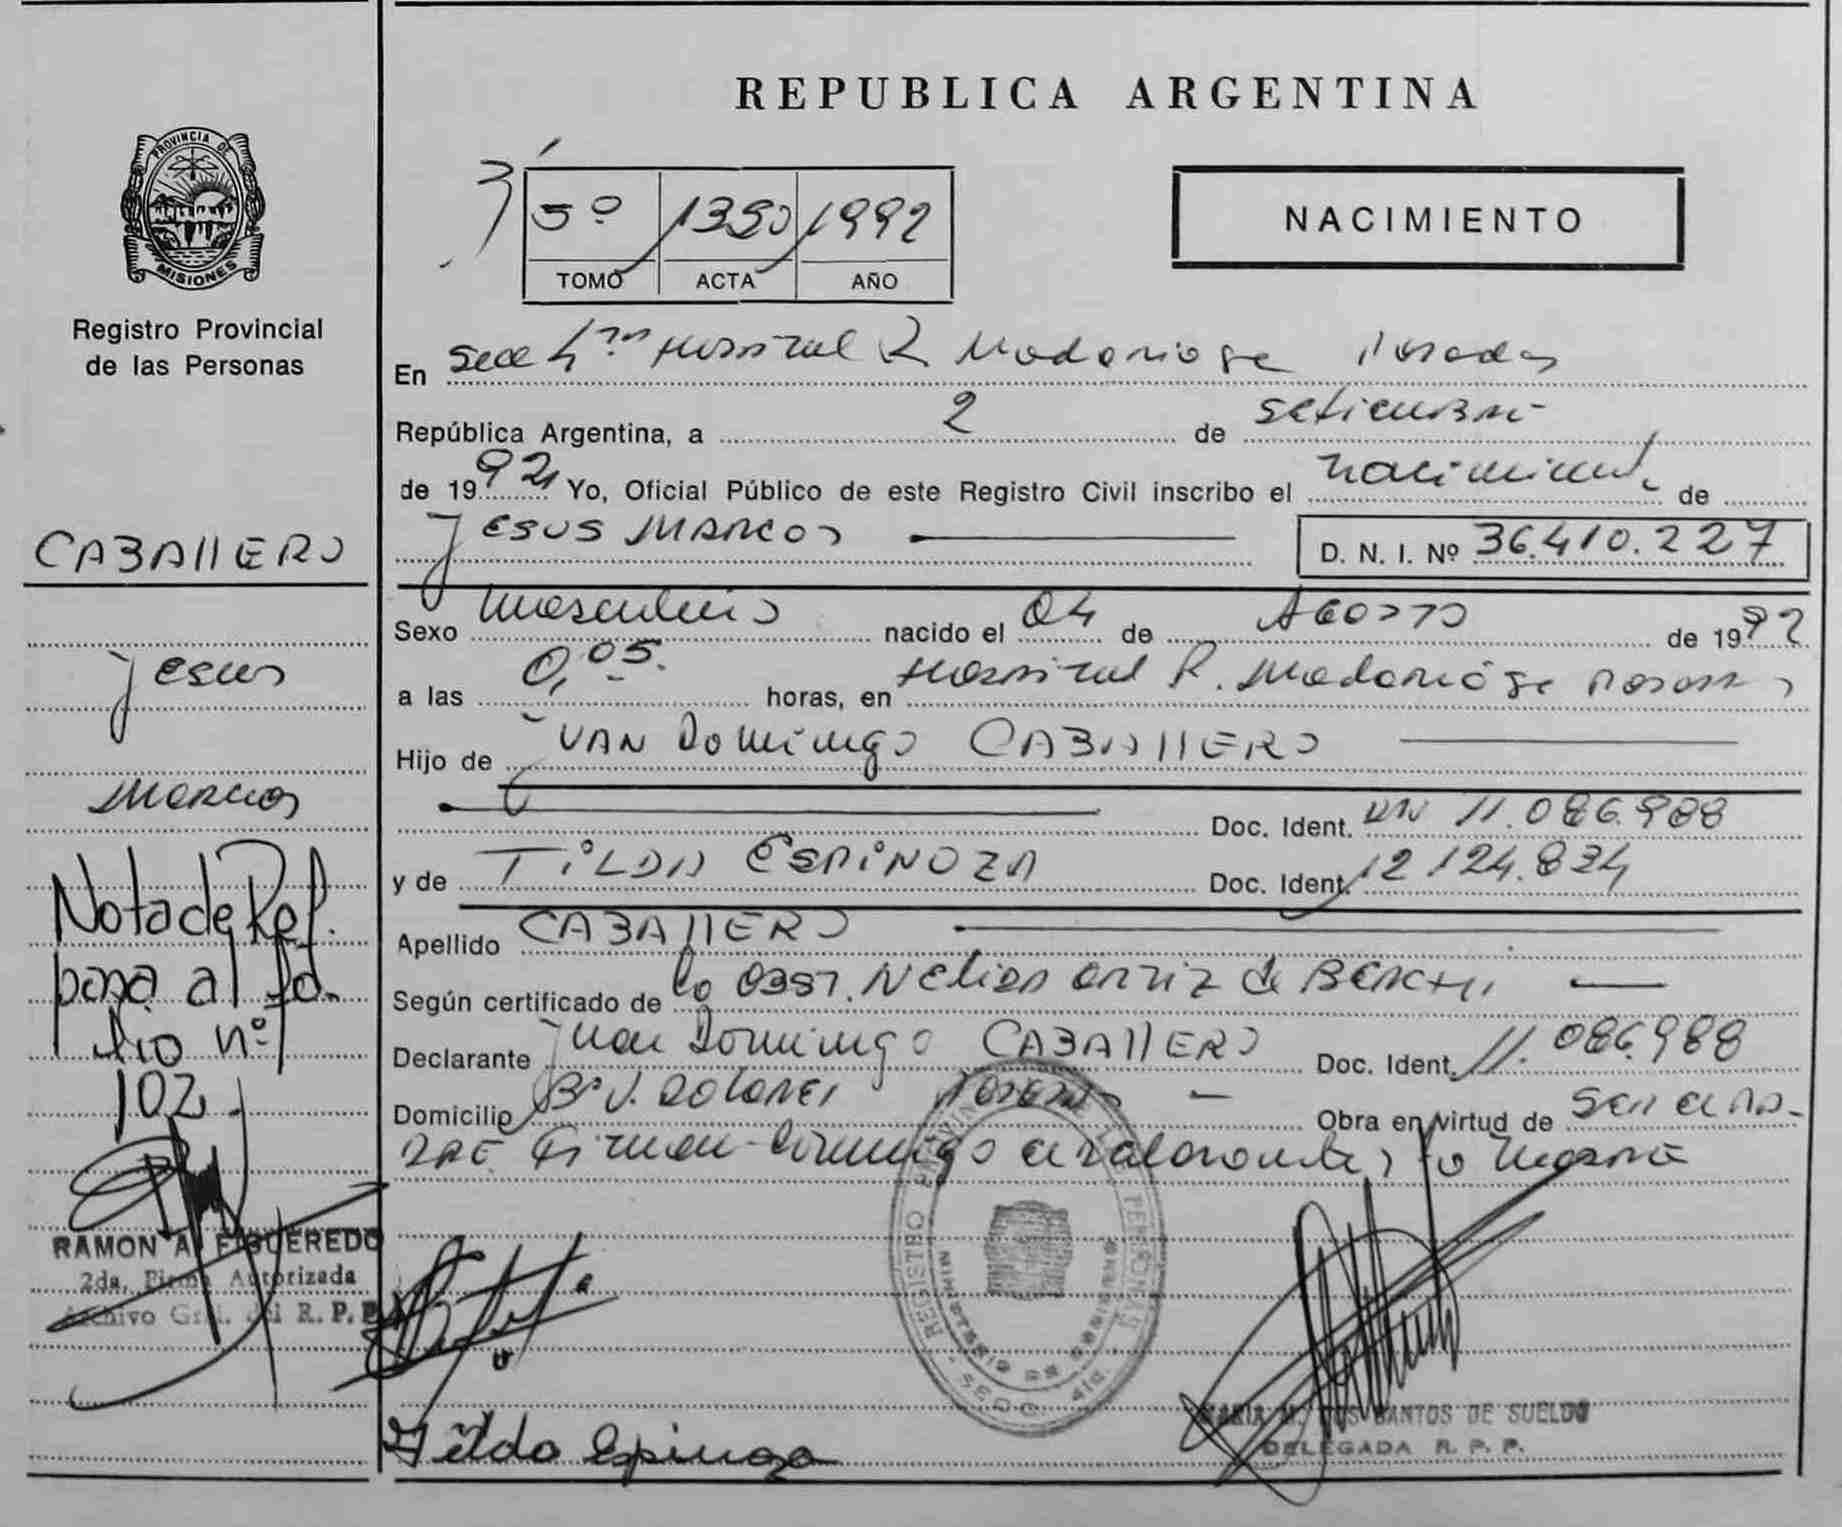 PROVINCIA DE
MISIONES
Registro Provincial
de las Personas
CABAllERO
Jesus
Marcos
Nota de Ref.
pasa al fo.
lio nº
102.
RAMON A. FIGUEREDO
2da. Firma Autorizada
Archivo Gral. del R. P. P.
REPUBLICA ARGENTINA
5º 1350 1992
TOMO ACTA AÑO
NACIMIENTO
En Secc 4ta Hospital R Madariaga Posadas
República Argentina, a 2 de setiembre
de 1992 Yo, Oficial Público de este Registro Civil inscribo el nacimiento de
JESUS MARCOS D. N. I. Nº 36.410.227
Sexo Masculino nacido el 04 de AGOSTO de 1992
a las 0,05. horas, en Hospital R. Madariaga Posadas
Hijo de JUAN DOMINGO CABAllERO
Doc. Ident. DN 11.086.988
y de TILDA ESPINOZA Doc. Ident. 12.124.834
Apellido CABAllERO
Según certificado de la OBST. NELIDA ORTIZ de
Declarante Juan Domingo CABAllERO Doc. Ident. 11.086.988
Domicilio Bº V. DOLORES Posadas Obra en virtud de ser el pa-
dre. Firman conmigo el declarante y la madre
REGISTRO PROVINCIAL DE LAS PERSONAS
MINISTERIO DE GOBIERNO
SECC. 4ta.
Tilda Espinoza
MARIA M. DOS SANTOS DE SUELDO
DELEGADA R. P. P.